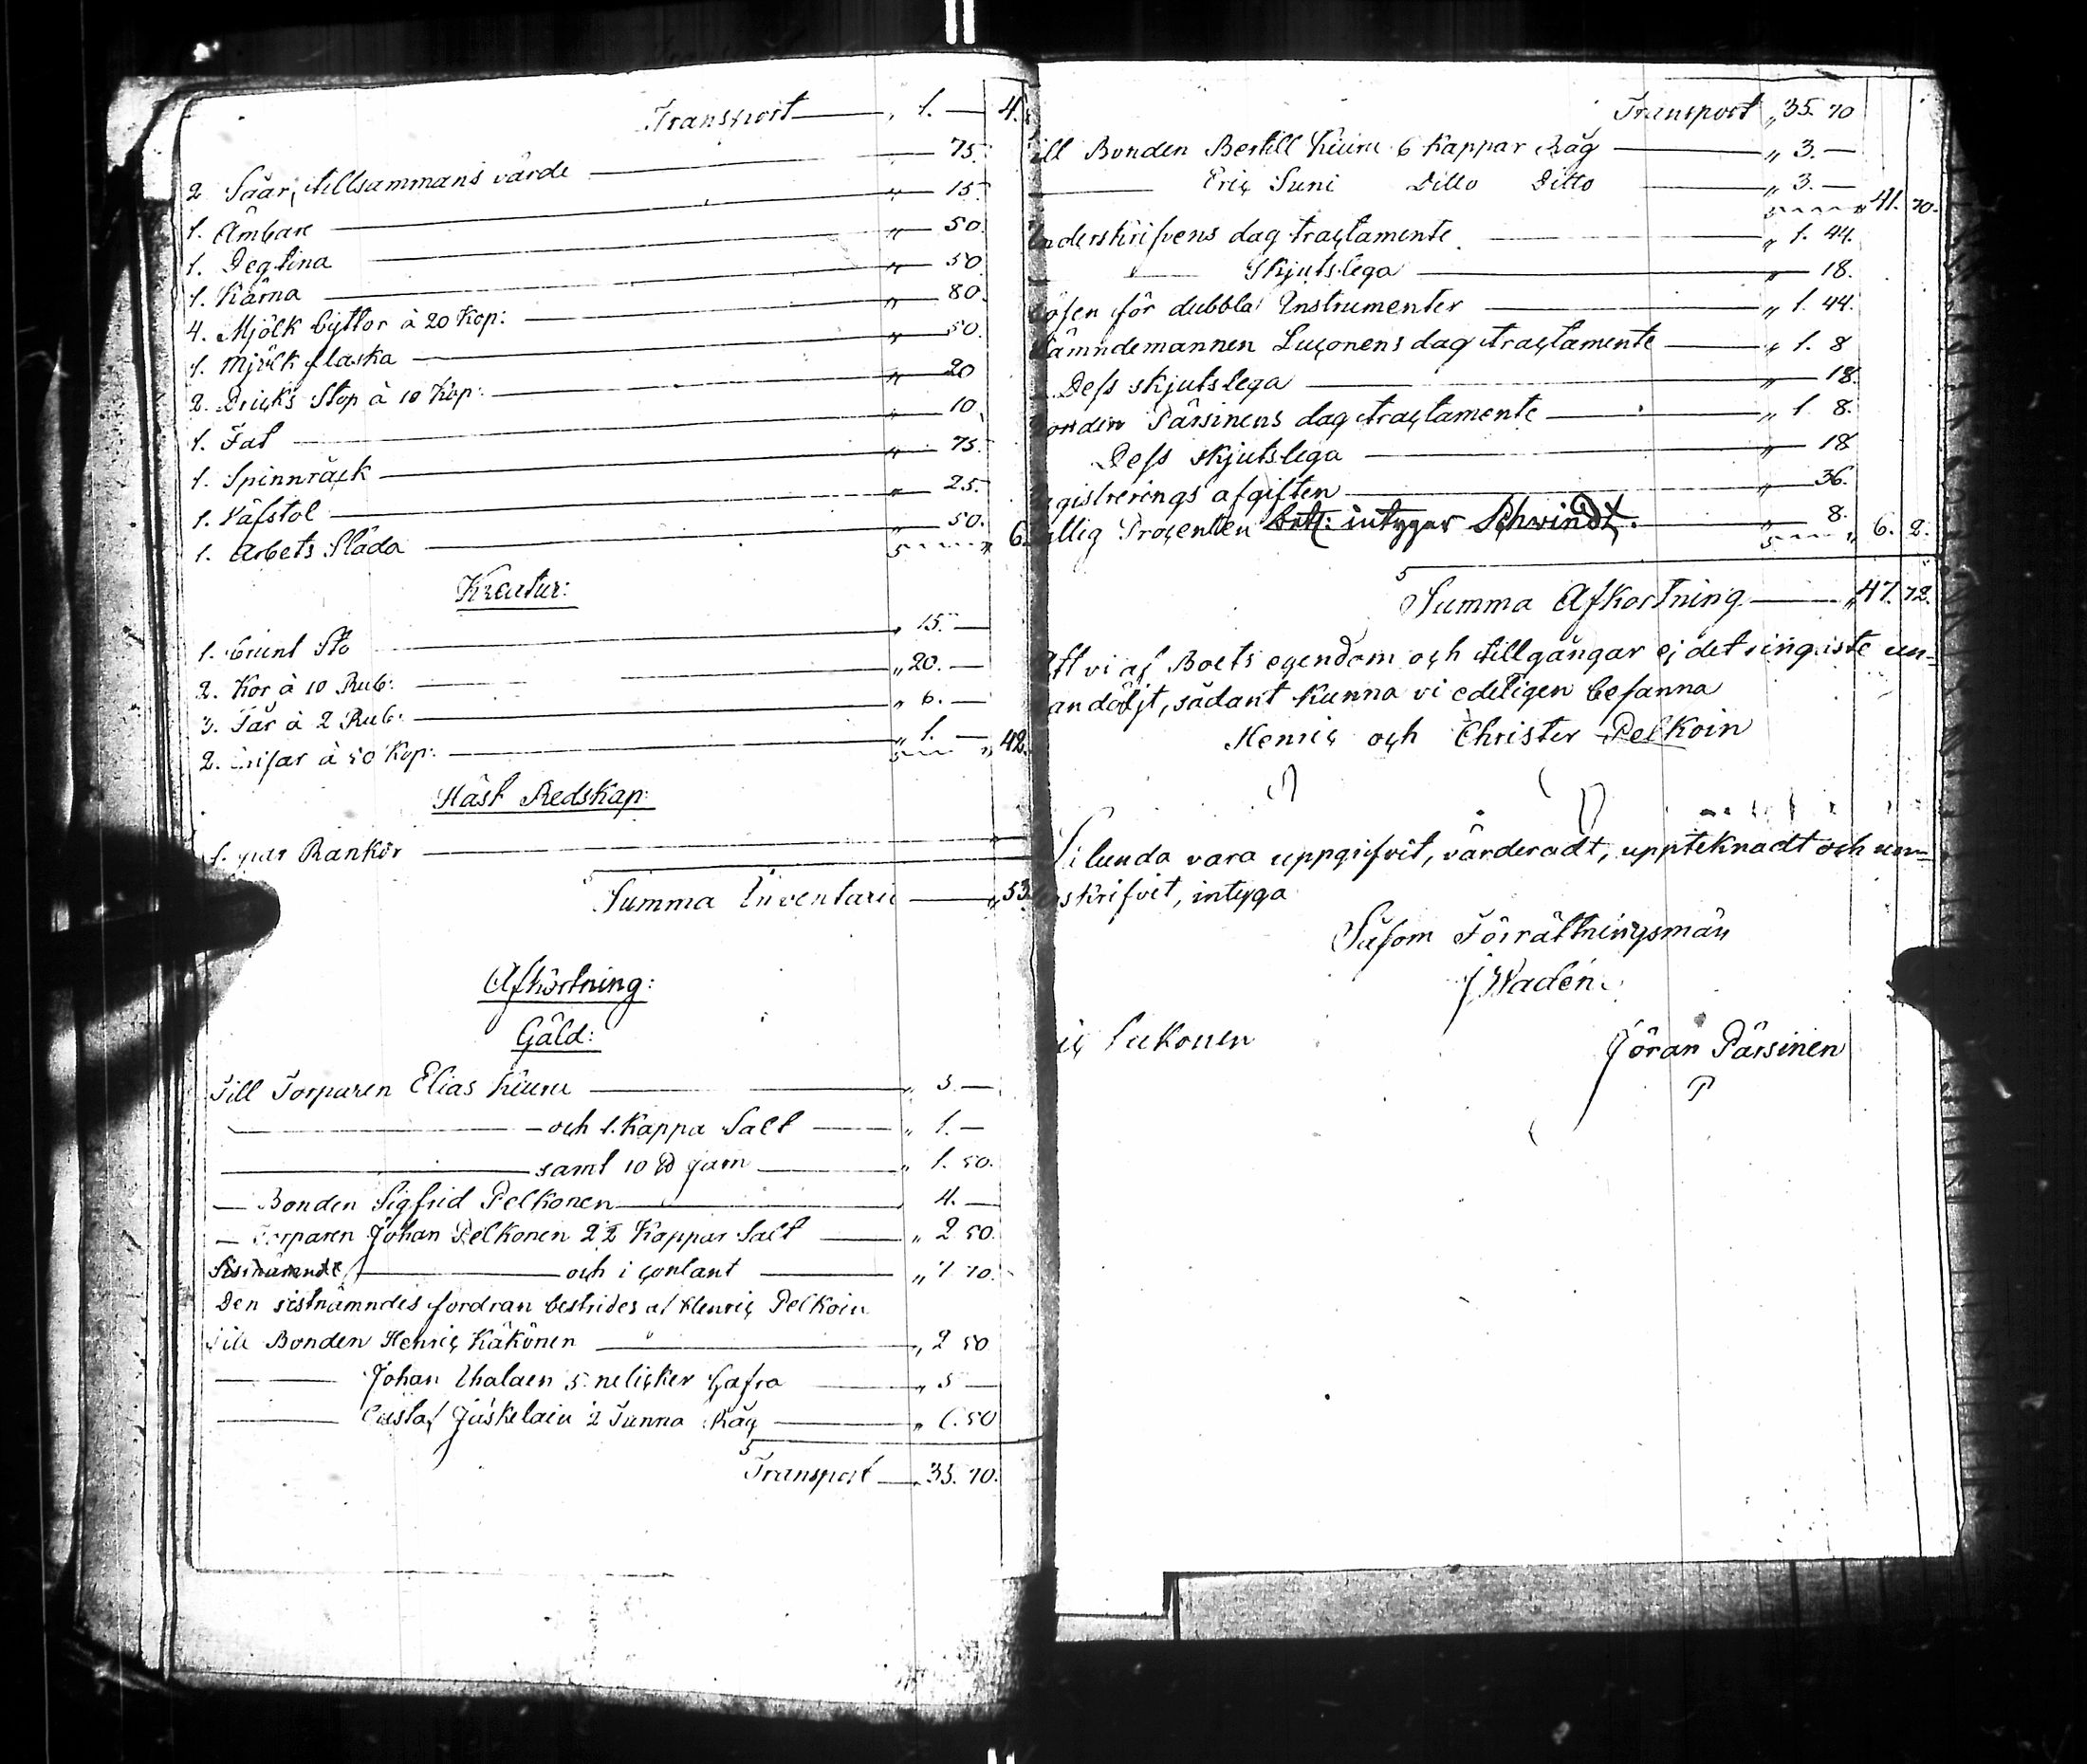 Transport „ 1. — 4.
2 Såar, tillsammans värde — 75.
1. Ämbare „ 15
1. Degtina „ 50.
1. Kärna „ 50
4. Mjölk byttor à 20 Kop: „ 80.
1. Mjölk flaska „ 50.
2. Dricks Stop à 10 Kop: „ 20
1. Fat „ 10
1. Spinnråck „ 75.
1. Väfstol „ 25.
1. Arbets Släda „ 50. „ 6.
Kreatur:
1. brunt Sto „ 15. —
2. Kor à 10 Rub: „ 20. —
3. Får à 2 Rub: „ 6. —
2. à 50 Kop: „ 1. — „ 42.
Häst Redskap:
1. par Rankor
Summa Inventarii „ 53.
Afkortning:
Gäld:
Till Torparen Elias Kiuru „ 5. —
— och 1. Kappa Salt „ 1. —
— samt 10 ℔ Järn „ 1. 50.
— Bonden Sigfrid Pelkonen 4. —
— Torparen Johan Pelkonen 2½ Kappar Salt „ 2 50.
Sistnämnde — och i contant „ 7 70.
Den sistnämndes fordran bestrides af Henric Pelkoin
Till Bonden Henric Käkönen „ 2 50
— Johan Ihalaen 5. Hafra „ 5 —
— Gustaf Jäskelain ½ Tunna Råg „ 6. 50
Transport „ 35. 70.
Transport „ 35. 70
ill Bonden Bertill Kiuru 6 Kappar Råg „ 3. —
— Eric Suni Ditto Ditto „ 3. — „ 41. 70.
Underskrifvens dag tractamente „ 1. 44.
— „ — Skjutslega „ 18.
ösen för dubbla Instrumenter „ 1. 44.
ämndemannen Luconens dag tractamente „ 1. 8
Dess skjutslega „ 18.
onden Pärsinens dag tractamente „ 1 8.
Dess skjutslega „ 18
gistrerings afgiften „ 36.
attig Procenten bet: intygar Schwindt. „ 8. „ 6. 2.
Summa Afkortning „ 47. 72.
Att vi af Boets egendom och tillgångar ej det ringaste un=
andöljt, sådant kunna vi edeligen besanna
Henric och Christer Pelkoin
Sålunda vara uppgifvit, värderadt, uppteknadt och un=
erskrifvit, intyga
Såsom Förrättningsmän
J Wadén.
ic Lukonen
Jöran Pärsinen